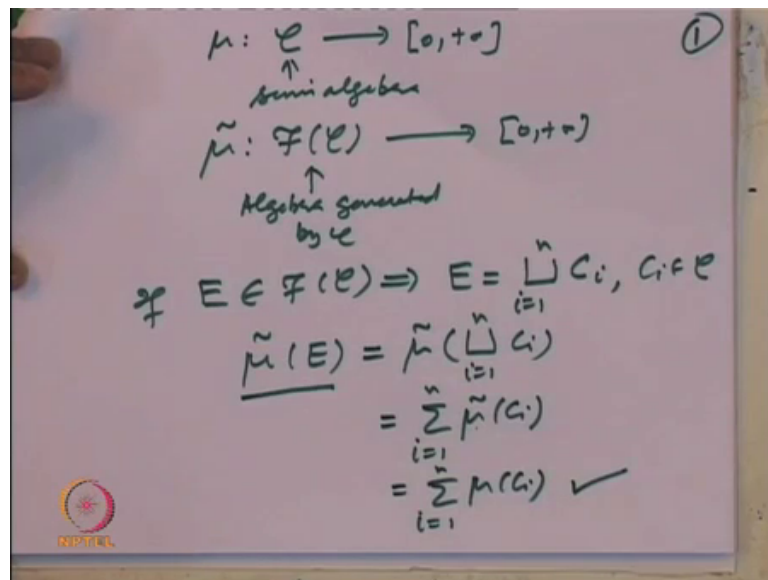 ①
μ: 𝒞 → [0, +∞]
↑
semi algebra
μ̃: ℱ(𝒞) → [0, +∞]
↑
Algebra generated
by 𝒞
If E ∈ ℱ(𝒞) ⟹ E = ⊔_{i=1}^{n} C_i, C_i ∈ 𝒞
μ̃(E) = μ̃(⊔_{i=1}^{n} C_i)
= Σ_{i=1}^{n} μ̃(C_i)
= Σ_{i=1}^{n} μ(C_i) ✓
NPTEL